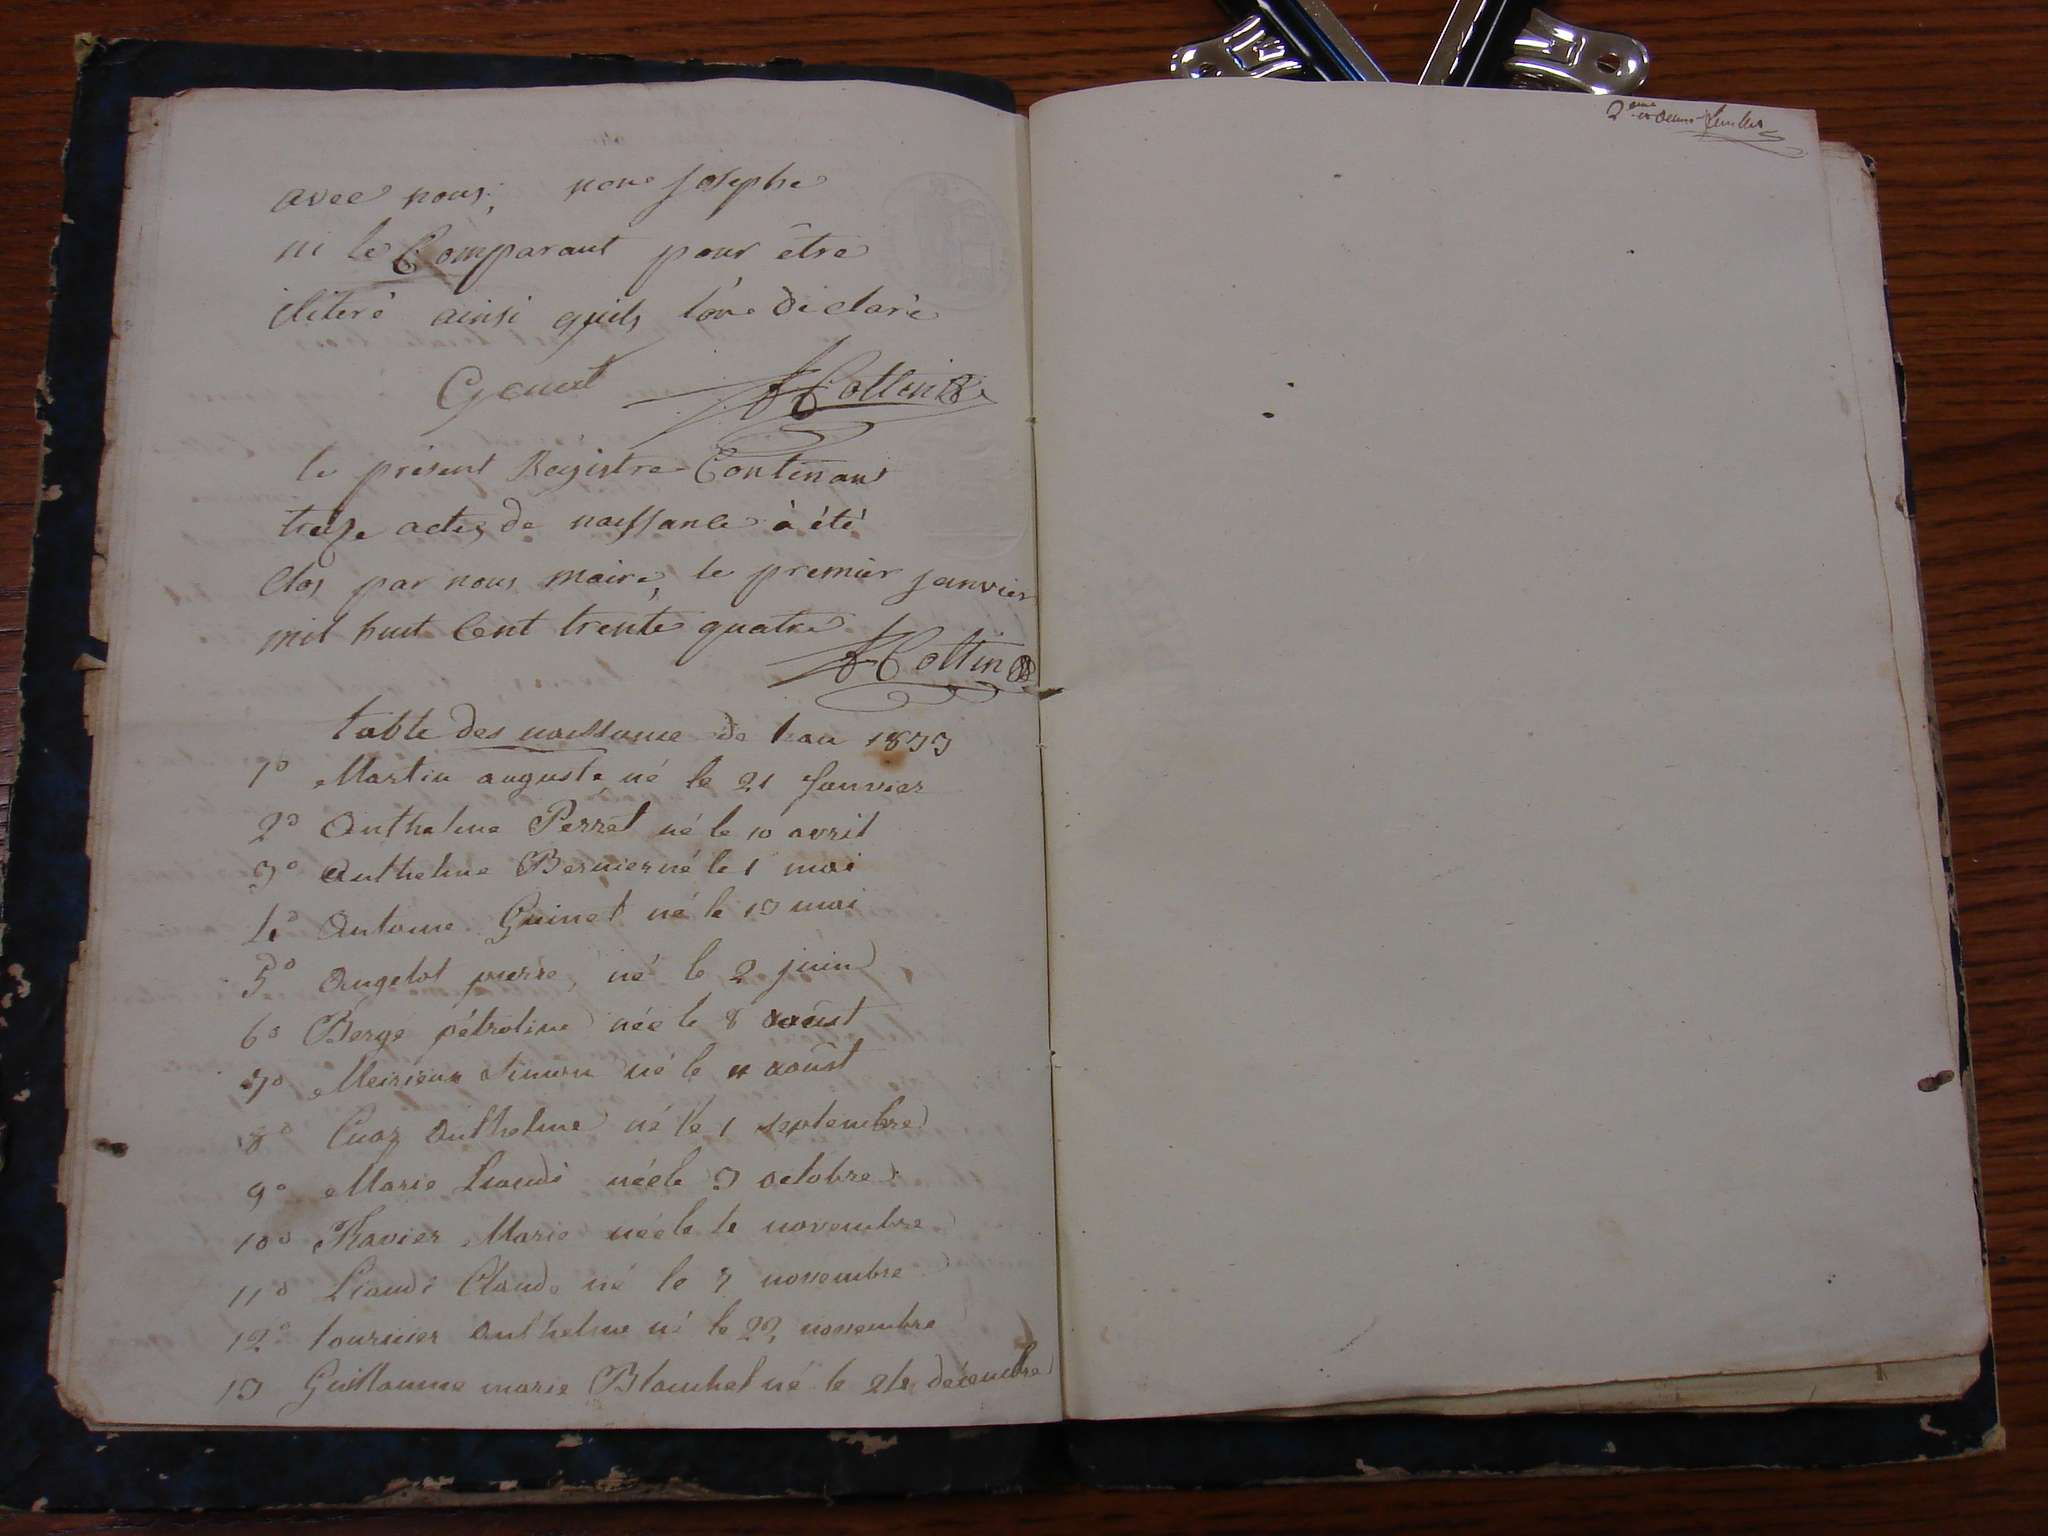 avec nous, non Josephe
ni le Comparant pour être
ilitéré ainsi quils l'on déclaré
Genet Collin
le présent Régistre Contenant
treize actes de naissance à été
Clos par nous maire, le premier janvier
mil huit Cent trente quatre
Collin
table des naissance de l'an 1833
1º Martin auguste, né le 21 Janvier
2º Anthelme Perret né le 10 avril
3º Anthelme Bernier né le 1 mai
4º Antoine Guinet né le 13 mai
5º Angelot pierre, né le 2 juin
6º Berge pétroline née le 8 aoûst
7º Meirieux Simon né le aoûst
8º Cuaz Anthelme né le 1 septembre
9º Marie Liaudi née le 3 octobre
10º Ravier Marie née le 4 novembre
11º Liaudi Claude né le 7 novembre
12º tournier Anthelme né le 22 novembre
13 Guillaume marie Blanchet né le 24 décembre
2eme